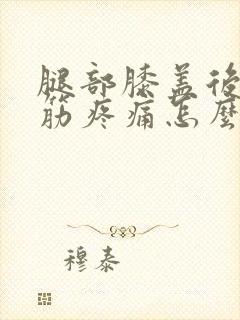 腿部膝盖後
筋疼痛怎麽
穆泰